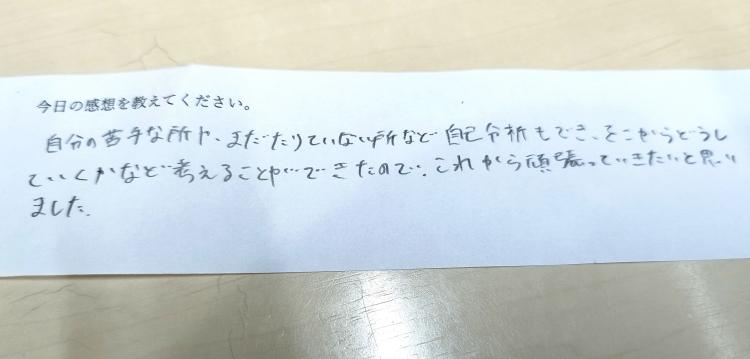 今日の感想を教えてください。
自分の苦手な所や、まだたりていない所など自己分析もでき、そこからどうし
ていくかなど考えることができたので、これから頑張っていきたいと思い
ました。